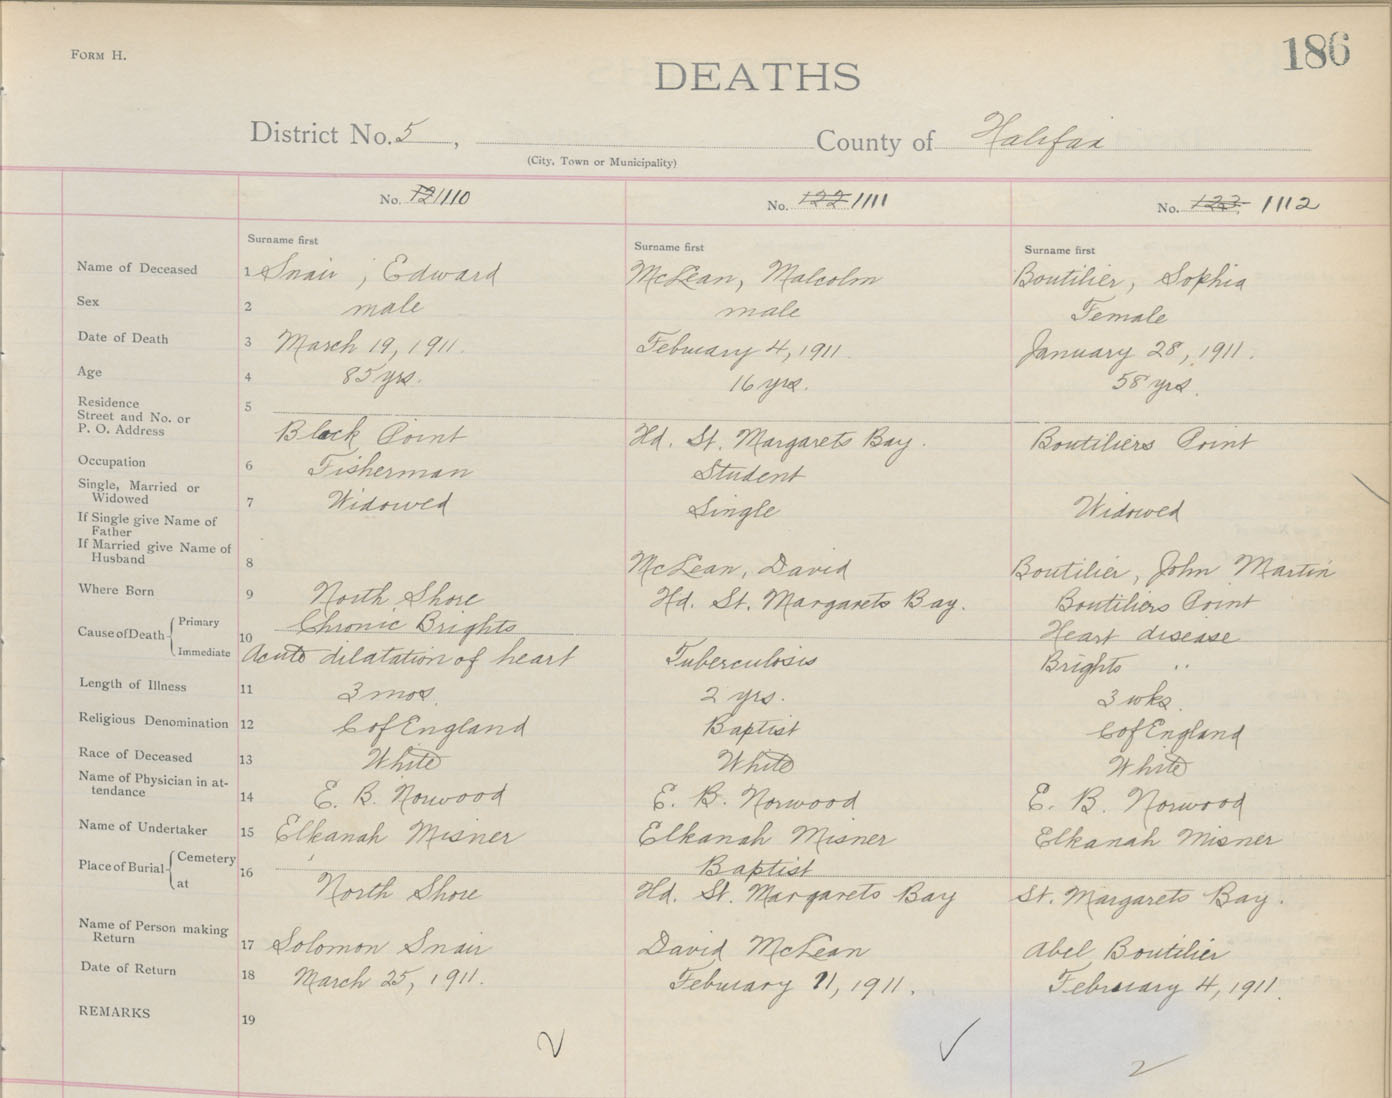 FORM H.
186
DEATHS
District No. 5, County of Halifax
(City, Town or Municipality)
No. 121110 No. 122 1111 No. 123 1112
Surname first Surname first Surname first
Name of Deceased 1 Snair, Edward McLean, Malcolm Boutilier, Sophia
Sex 2 male male Female
Date of Death 3 March 19, 1911. February 4, 1911. January 28, 1911.
Age 4 85 yrs. 16 yrs. 58 yrs.
Residence 5
Street and No. or
P. O. Address Black Point Hd. St. Margarets Bay. Boutiliers Point
Occupation 6 Fisherman Student
Single, Married or
Widowed 7 Widowed Single Widowed
If Single give Name of
Father
If Married give Name of
Husband 8 McLean, David Boutilier, John Martin
Where Born 9 North Shore Hd. St. Margarets Bay. Boutiliers Point
Cause of Death Primary 10 Chronic Brights Heart disease
Immediate Acute dilatation of heart Tuberculosis Brights "
Length of Illness 11 3 mos. 2 yrs. 3 wks.
Religious Denomination 12 C of England Baptist C of England
Race of Deceased 13 White White White
Name of Physician in at-
tendance 14 E. B. Norwood E. B. Norwood E. B. Norwood
Name of Undertaker 15 Elkanah Misner Elkanah Misner Elkanah Misner
Place of Burial Cemetery 16 Baptist
at North Shore Hd. St. Margarets Bay St. Margarets Bay.
Name of Person making
Return 17 Solomon Snair David McLean Abel Boutilier
Date of Return 18 March 25, 1911. February 11, 1911. February 4, 1911.
REMARKS 19
2 ✓ 2